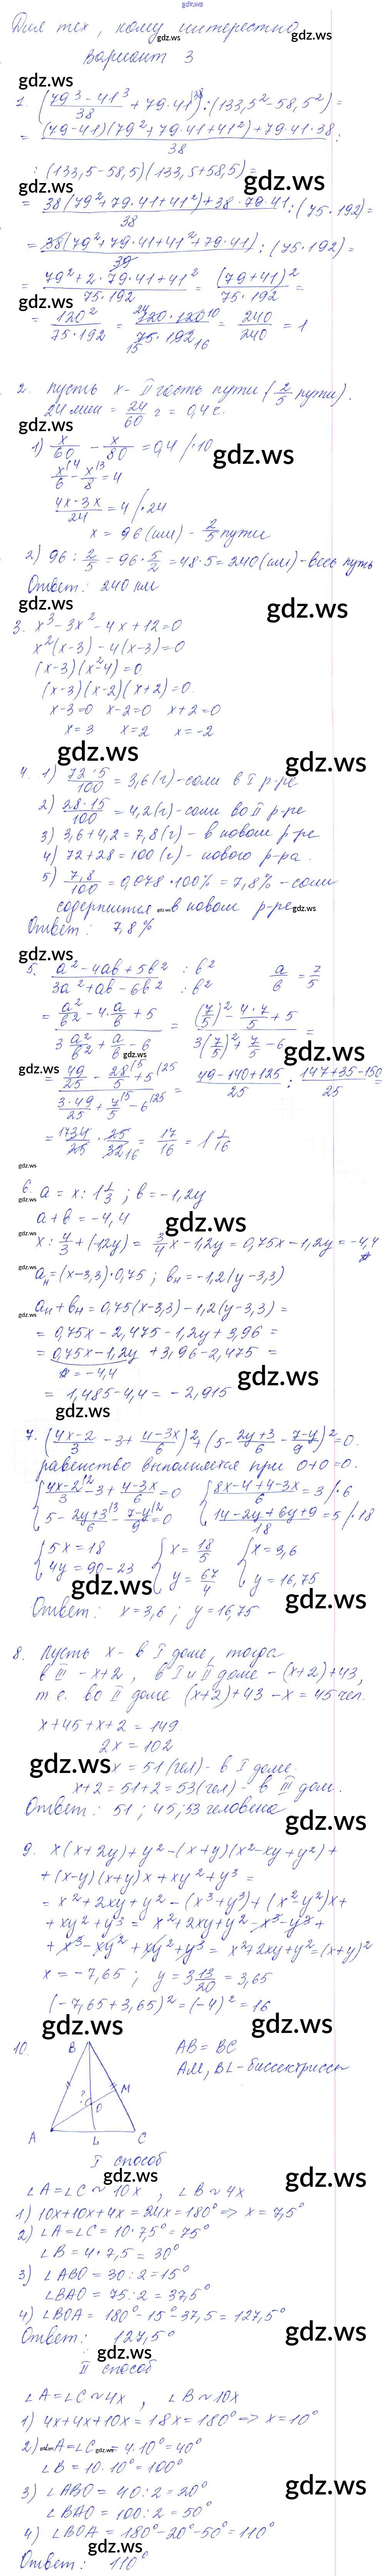 Для тех, кому интересно
Вариант 3
1. ((79³ - 41³)/38 + 79·41) : (133,5² - 58,5²) =
= ((79-41)(79² + 79·41 + 41²) + 79·41·38)/38 :
: (133,5 - 58,5)(133,5 + 58,5) =
= (38(79² + 79·41 + 41²) + 38·79·41)/38 : (75·192) =
= 38(79² + 79·41 + 41² + 79·41)/39 : (75·192) =
= (79² + 2·79·41 + 41²)/(75·192) = (79+41)²/(75·192) =
= 120²/(75·192) = (120·120)/(75·192) = 240/240 = 1
2. Пусть x - II часть пути (2/5 пути).
24 мин = 24/60 г = 0,4 г.
1) x/60 - x/80 = 0,4 /·10
x/6 - x/8 = 4
(4x - 3x)/24 = 4 /·24
x = 96 (км) - 2/5 пути
2) 96 : 2/5 = 96 · 5/2 = 48·5 = 240 (км) - весь путь
Ответ: 240 км
3. x³ - 3x² - 4x + 12 = 0
x²(x-3) - 4(x-3) = 0
(x-3)(x²-4) = 0
(x-3)(x-2)(x+2) = 0.
x-3=0 x-2=0 x+2=0
x=3 x=2 x=-2
4. 1) 72·5/100 = 3,6 (г) - соли в I р-ре
2) 28·15/100 = 4,2 (г) - соли во II р-ре
3) 3,6 + 4,2 = 7,8 (г) - в новом р-ре
4) 72 + 28 = 100 (г) - нового р-ра.
5) 7,8/100 = 0,078·100% = 7,8% - соли
содержится в новом р-ре
Ответ: 7,8%
5. (a² - 4ab + 5b²)/(3a² + ab - 6b²) : b² : b² a/b = 7/5
= (a²/b² - 4·a/b + 5)/(3a²/b² + a/b - 6) = ((7/5)² - 4·7/5 + 5)/(3(7/5)² + 7/5 - 6) =
= (49/25 - 28/5 + 5)/(3·49/25 + 7/5 - 6) = (49 - 140 + 125)/25 : (147 + 35 - 150)/25 =
= 34/25 · 25/32 = 17/16 = 1 1/16
6. a = x : 1 1/3; b = -1,2y
a + b = -4,4
x : 4/3 + (-1,2y) = 3/4x - 1,2y = 0,75x - 1,2y = -4,4
aн = (x-3,3)·0,75; bн = -1,2(y-3,3)
aн + bн = 0,75(x-3,3) - 1,2(y-3,3) =
= 0,75x - 2,475 - 1,2y + 3,96 =
= 0,75x - 1,2y + 3,96 - 2,475 =
= -4,4
= 1,485 - 4,4 = -2,915
7. ((4x-2)/3 - 3 + (4-3x)/6)² + (5 - (2y+3)/6 - (7-y)/9)² = 0.
равенство выполняется при 0+0=0.
{(4x-2)/3 - 3 + (4-3x)/6 = 0 {(8x-4+4-3x)/6 = 3 /·6
{5 - (2y+3)/6 - (7-y)/9 = 0 {(14-2y+6y+9)/18 = 5 /·18
{5x = 18 {x = 18/5 {x = 3,6
{4y = 90-23 {y = 67/4 {y = 16,75
Ответ: x = 3,6; y = 16,75
8. Пусть x - в I доме, тогда
в III - x+2, в I и II доме - (x+2)+43,
т.е. во II доме (x+2)+43-x = 45 чел.
x+45+x+2 = 149
2x = 102
x = 51 (чел) - в I доме.
x+2 = 51+2 = 53 (чел) - в III дом.
Ответ: 51; 45; 53 человека
9. x(x+2y) + y² - (x+y)(x²-xy+y²) +
+ (x-y)(x+y)x + xy² + y³ =
= x² + 2xy + y² - (x³+y³) + (x²-y²)x +
+ xy² + y³ = x² + 2xy + y² - x³ - y³ +
+ x³ - xy² + xy² + y³ = x² + 2xy + y² = (x+y)²
x = -7,65; y = 3 13/20 = 3,65
(-7,65 + 3,65)² = (-4)² = 16
10. B AB = BC
AM, BL - биссектрисы
M
?
O
A L C
I способ
∠A = ∠C ~ 10x, ∠B ~ 4x
1) 10x + 10x + 4x = 24x = 180° => x = 7,5°
2) ∠A = ∠C = 10·7,5° = 75°
∠B = 4·7,5 = 30°
3) ∠ABO = 30 : 2 = 15°
∠BAO = 75 : 2 = 37,5°
4) ∠BOA = 180° - 15° - 37,5 = 127,5°
Ответ: 127,5°
II способ
∠A = ∠C ~ 4x, ∠B ~ 10x
1) 4x + 4x + 10x = 18x = 180° => x = 10°
2) ∠A = ∠C = 4·10° = 40°
∠B = 10·10° = 100°
3) ∠ABO = 40 : 2 = 20°
∠BAO = 100 : 2 = 50°
4) ∠BOA = 180° - 20° - 50° = 110°
Ответ: 110°
gdz.ws